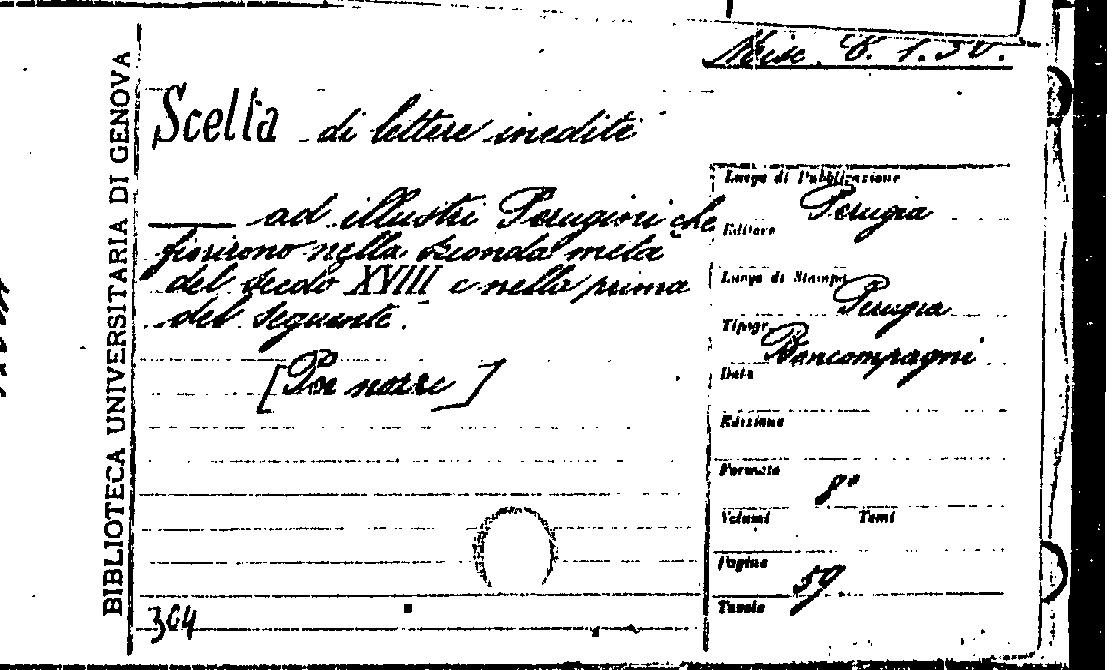 Misc. C. 1. 50.
BIBLIOTECA UNIVERSITARIA DI GENOVA
Scelta di lettere inedite
ad illustri Perugini che
fiorirono nella seconda metà
del secolo XVIII e nella prima
del seguente.
[Per nozze]
Luogo di Pubblicazione
Perugia
Editore
Luogo di Stampa
Perugia
Tipogr.
Boncompagni
Data
Edizione
Formato
8°
Volumi Tomi
Pagine
59.
Tavole
304